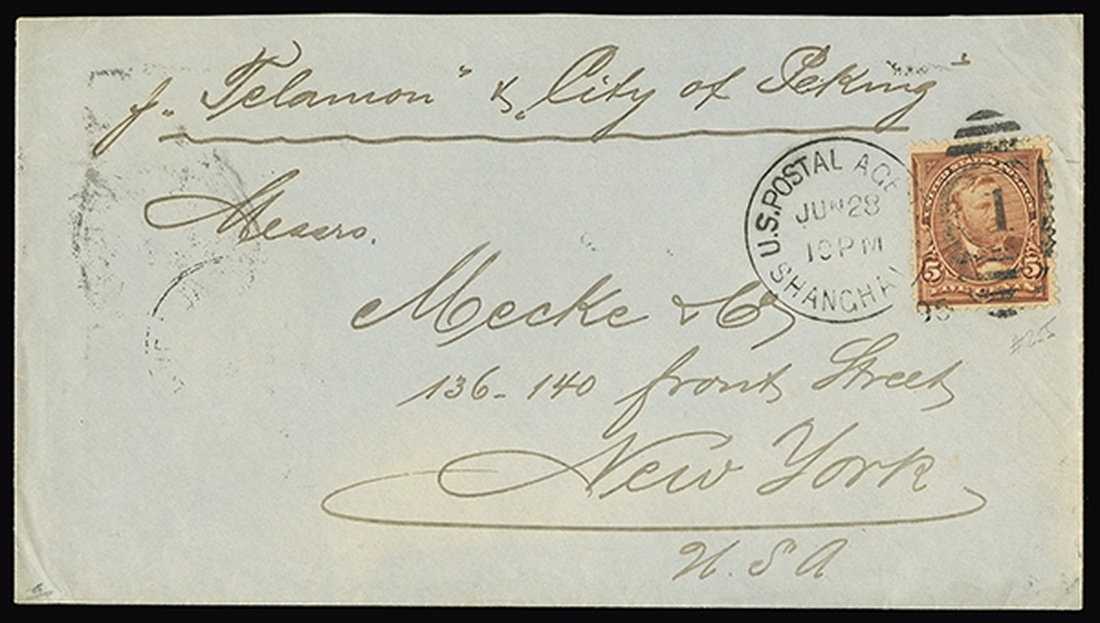 p. „Telamon" & „City of Peking"
Messrs.
Mecke & Co
136-140 front Street
New York
U.S.A
U.S. POSTAL AGE
JUN 28
10 PM
SHANGHA
95
UNITED STATES POSTAGE
1
5 5